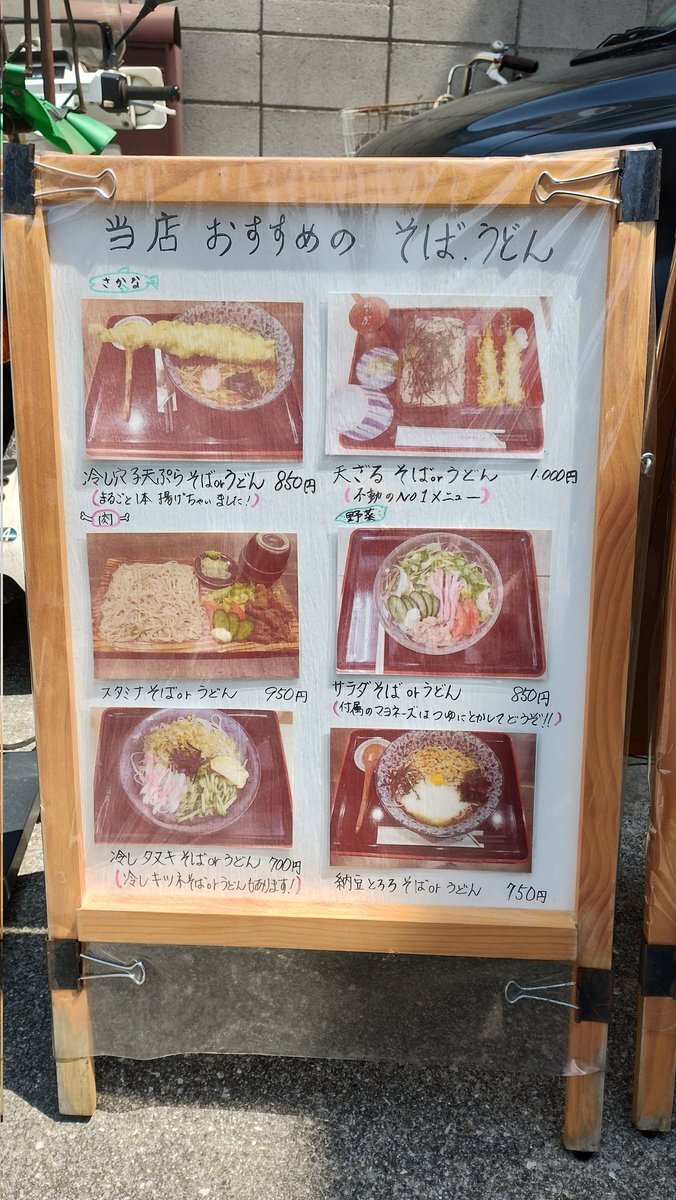 当店 おすすめの そば.うどん
さかな
冷し穴子天ぷらそばorうどん 850円
(まるごと1本 揚げちゃいました!)
天ざる そばorうどん 1.000円
(不動のNo1メニュー)
肉
スタミナそばorうどん 950円
野菜
サラダそばorうどん 850円
(付属のマヨネーズはつゆにとかしてどうぞ!!)
冷し タヌキ そばorうどん 700円
(冷し キツネそばorうどんもあります!)
納豆とろろ そばor うどん 750円